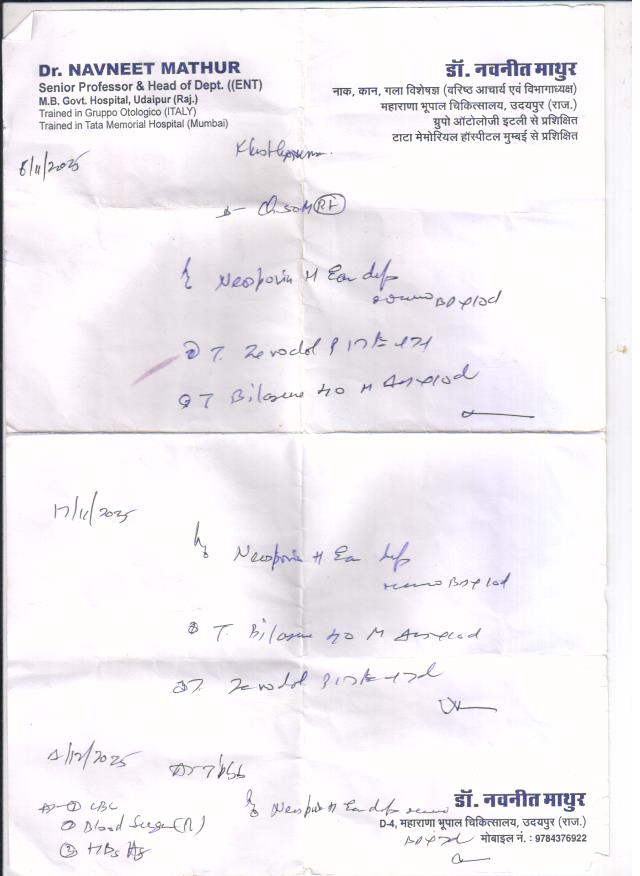 Dr. NAVNEET MATHUR
Senior Professor & Head of Dept. ((ENT)
M.B. Govt. Hospital, Udaipur (Raj.)
Trained in Gruppo Otologico (ITALY)
Trained in Tata Memorial Hospital (Mumbai)
डॉ. नवनीत माथुर
नाक, कान, गला विशेषज्ञ (वरिष्ठ आचार्य एवं विभागाध्यक्ष)
महाराणा भूपाल चिकित्सालय, उदयपुर (राज.)
ग्रुपो ऑटोलोजी इटली से प्रशिक्षित
टाटा मेमोरियल हॉस्पीटल मुम्बई से प्रशिक्षित
/11/2025
CSOM Rt
Neosporin H Ear drop
BD x 10d
② T. Zerodol P
③ T Bilasure 40 M x 10d
17/11/2025
Neosporin H Ear drop
BD x 10d
② T. Bilasure 40 M x 10d
③ T. Zerodol P
/12/2025
① CBC
② Blood Sugar (R)
③ HBs Ag
Neosporin H Ear drop
डॉ. नवनीत माथुर
D-4, महाराणा भूपाल चिकित्सालय, उदयपुर (राज.)
मोबाइल नं. : 9784376922